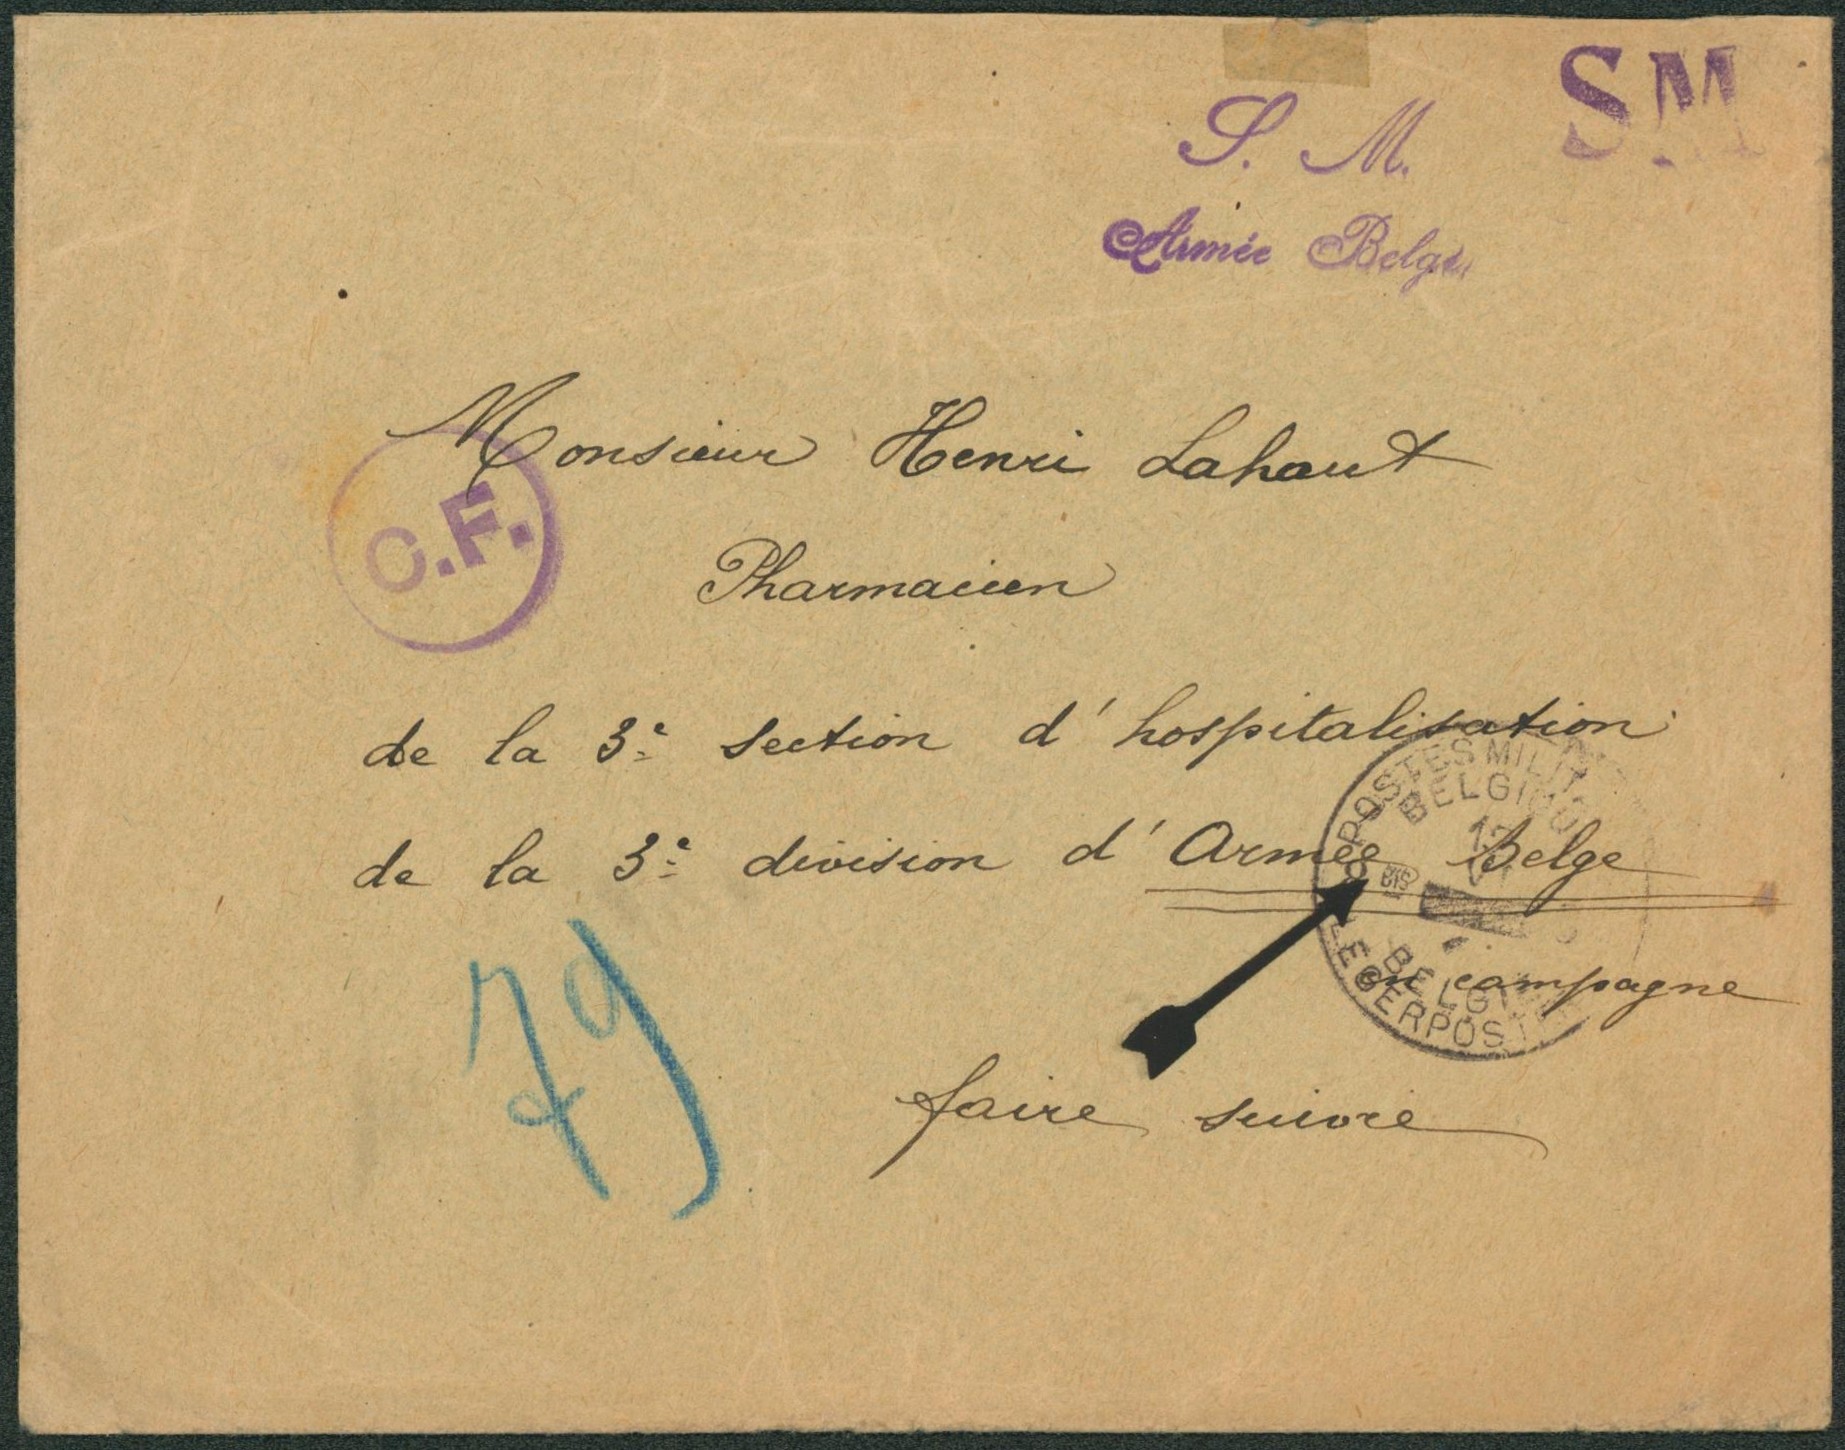 SM
S. M.
Armée Belge
Monsieur Henri Lahaut
C.F.
Pharmacien
de la 3e section d'hospitalisation
de la 3e division d'Armée Belge
en campagne
faire suivre
79
POSTES MILIT
BELGIQU
BELGI
LEGERPOST